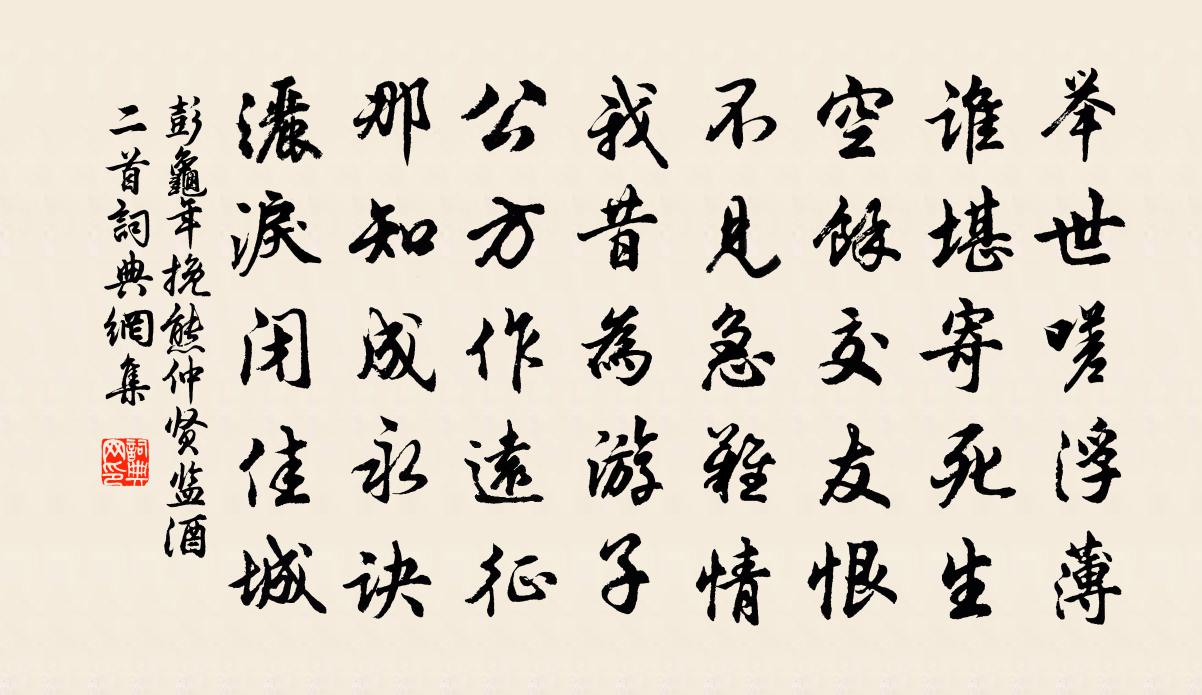 举世嗟浮薄
谁堪寄死生
空餘交友恨
不见急難情
我昔為游子
公方作遠征
那知成永诀
灑淚闭佳城
彭龜年挽熊仲贤监酒
二首詞典網集
詞典网印